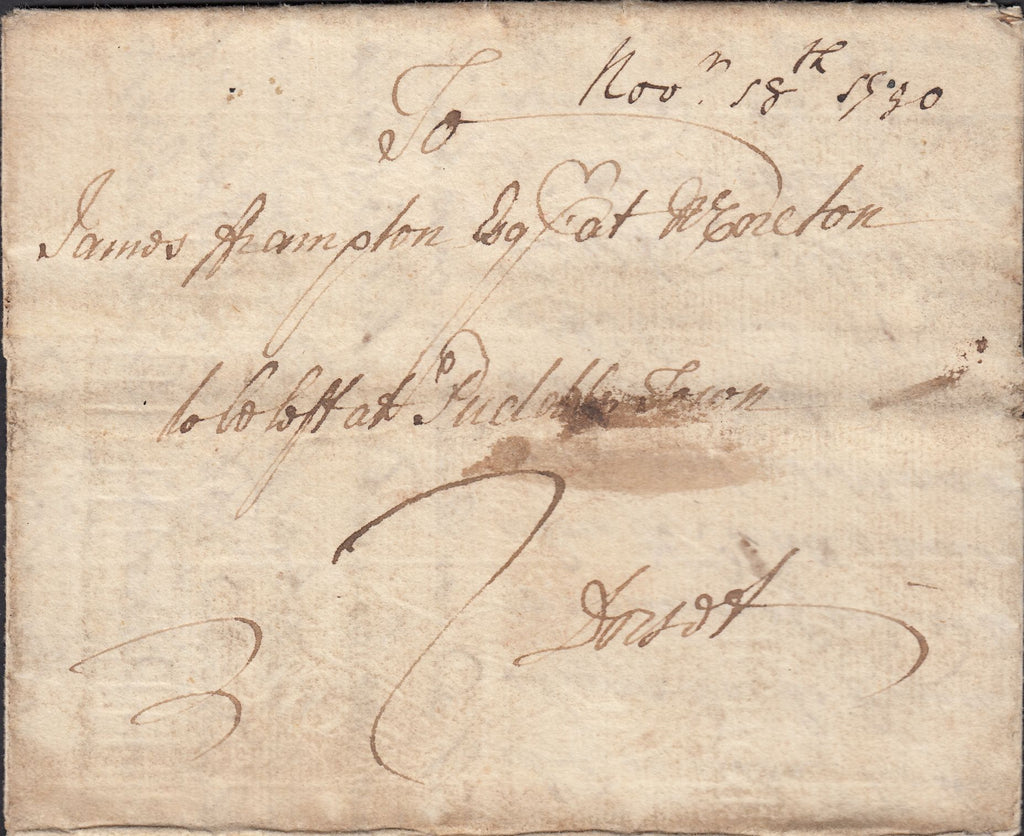 Novr. 18th 1730
To
James fframpton Esqr at Moreton
to be left at Puddle Town
Dorset
3 7